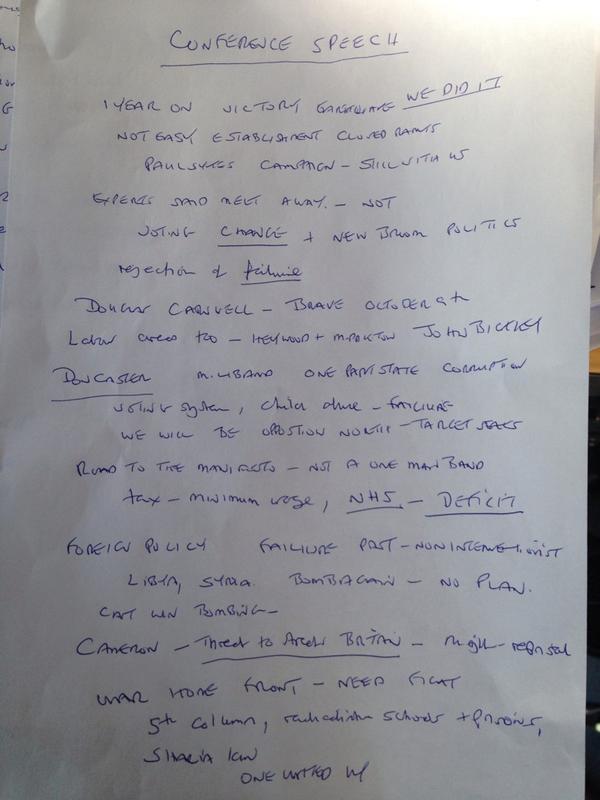 CONFERENCE SPEECH
1 YEAR ON VICTORY EARTHQUAKE WE DID IT
NOT EASY ESTABLISHMENT CLOSED RANKS
PAUL SYKES CAMPAIGN - STILL WITH US
EXPERTS SAID MELT AWAY. - NOT
VOTING CHANGE + NEW BROOM POLITICS
rejection of failure
DOUGLAS CARSWELL - BRAVE OCTOBER 9th
Labour areas too - HEYWOOD + MIDDLETON JOHN BICKLEY
DONCASTER MILIBAND ONE PARTY STATE CORRUPTION
VOTING system, child abuse - FAILURE
WE WILL BE OPPOSTION NORTH - TARGET SEATS
ROAD TO THE MANIFESTO - NOT A ONE MAN BAND
tax - minimum wage, NHS - DEFICIT
FOREIGN POLICY FAILURE PAST - NON INTERVENTIONIST
LIBYA, SYRIA. BOMB AGAIN - NO PLAN.
CAN'T WIN BOMBING -
CAMERON - Threat to BRITAIN -
WAR HOME FRONT - NEED FIGHT
5th column, schools + prisons,
SHARIA law
ONE UNITED